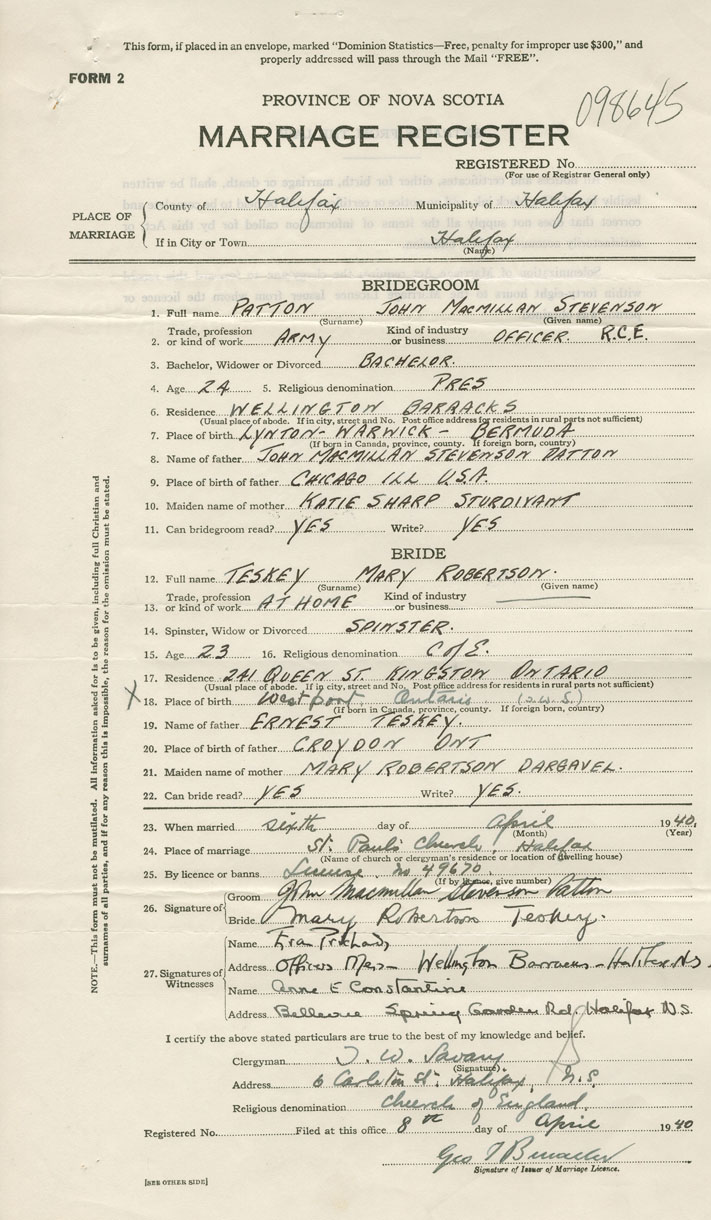 This form, if placed in an envelope, marked "Dominion Statistics—Free, penalty for improper use $300," and
properly addressed will pass through the Mail "FREE".
FORM 2
PROVINCE OF NOVA SCOTIA
098645
MARRIAGE REGISTER
REGISTERED No.
(For use of Registrar General only)
PLACE OF MARRIAGE
County of Halifax Municipality of Halifax
If in City or Town Halifax
(Name)
BRIDEGROOM
1. Full name PATTON JOHN MACMILLAN STEVENSON
(Surname) (Given name)
2. Trade, profession or kind of work ARMY Kind of industry or business OFFICER. R.C.E.
3. Bachelor, Widower or Divorced BACHELOR.
4. Age 24 5. Religious denomination PRES
6. Residence WELLINGTON BARRACKS
(Usual place of abode. If in city, street and No. Post office address for residents in rural parts not sufficient)
7. Place of birth LYNTON- WARWICK - BERMUDA
(If born in Canada, province, county. If foreign born, country)
8. Name of father JOHN MACMILLAN STEVENSON PATTON
9. Place of birth of father CHICAGO ILL U.S.A.
10. Maiden name of mother KATIE SHARP STURDIVANT
11. Can bridegroom read? YES Write? YES
BRIDE
12. Full name TESKEY MARY ROBERTSON.
(Surname) (Given name)
13. Trade, profession or kind of work AT HOME Kind of industry or business
14. Spinster, Widow or Divorced SPINSTER.
15. Age 23 16. Religious denomination C of E.
17. Residence 241 QUEEN ST. KINGSTON ONTARIO
(Usual place of abode. If in city, street and No. Post office address for residents in rural parts not sufficient)
X 18. Place of birth Westport Ontario
(If born in Canada, province, county. If foreign born, country)
19. Name of father ERNEST TESKEY.
20. Place of birth of father CROYDON ONT
21. Maiden name of mother MARY ROBERTSON DARGAVEL.
22. Can bride read? YES Write? YES.
23. When married sixth day of April 1940.
(Month) (Year)
24. Place of marriage St. Paul's Church, Halifax
(Name of church or clergyman's residence or location of dwelling house)
25. By licence or banns License no 49670
(If by licence, give number)
26. Signature of
Groom John Macmillan Stevenson Patton
Bride Mary Robertson Teskey.
27. Signatures of Witnesses
Name Prichard,
Address Officers Mess - Wellington Barracks - Halifax N.S.
Name Anne E Constantine
Address Bellevue Spring Garden Rd. Halifax N.S.
I certify the above stated particulars are true to the best of my knowledge and belief.
Clergyman T. W. Savary
(Signature).
Address 6 Carleton St. Halifax, N.S.
Religious denomination Church of England.
Registered No. Filed at this office 8th day of April 1940
Geo T
Signature of Issuer of Marriage Licence.
[SEE OTHER SIDE]
NOTE.—This form must not be mutilated. All information asked for is to be given, including full Christian and
surnames of all parties, and if for any reason this is impossible, the reason for the omission must be stated.